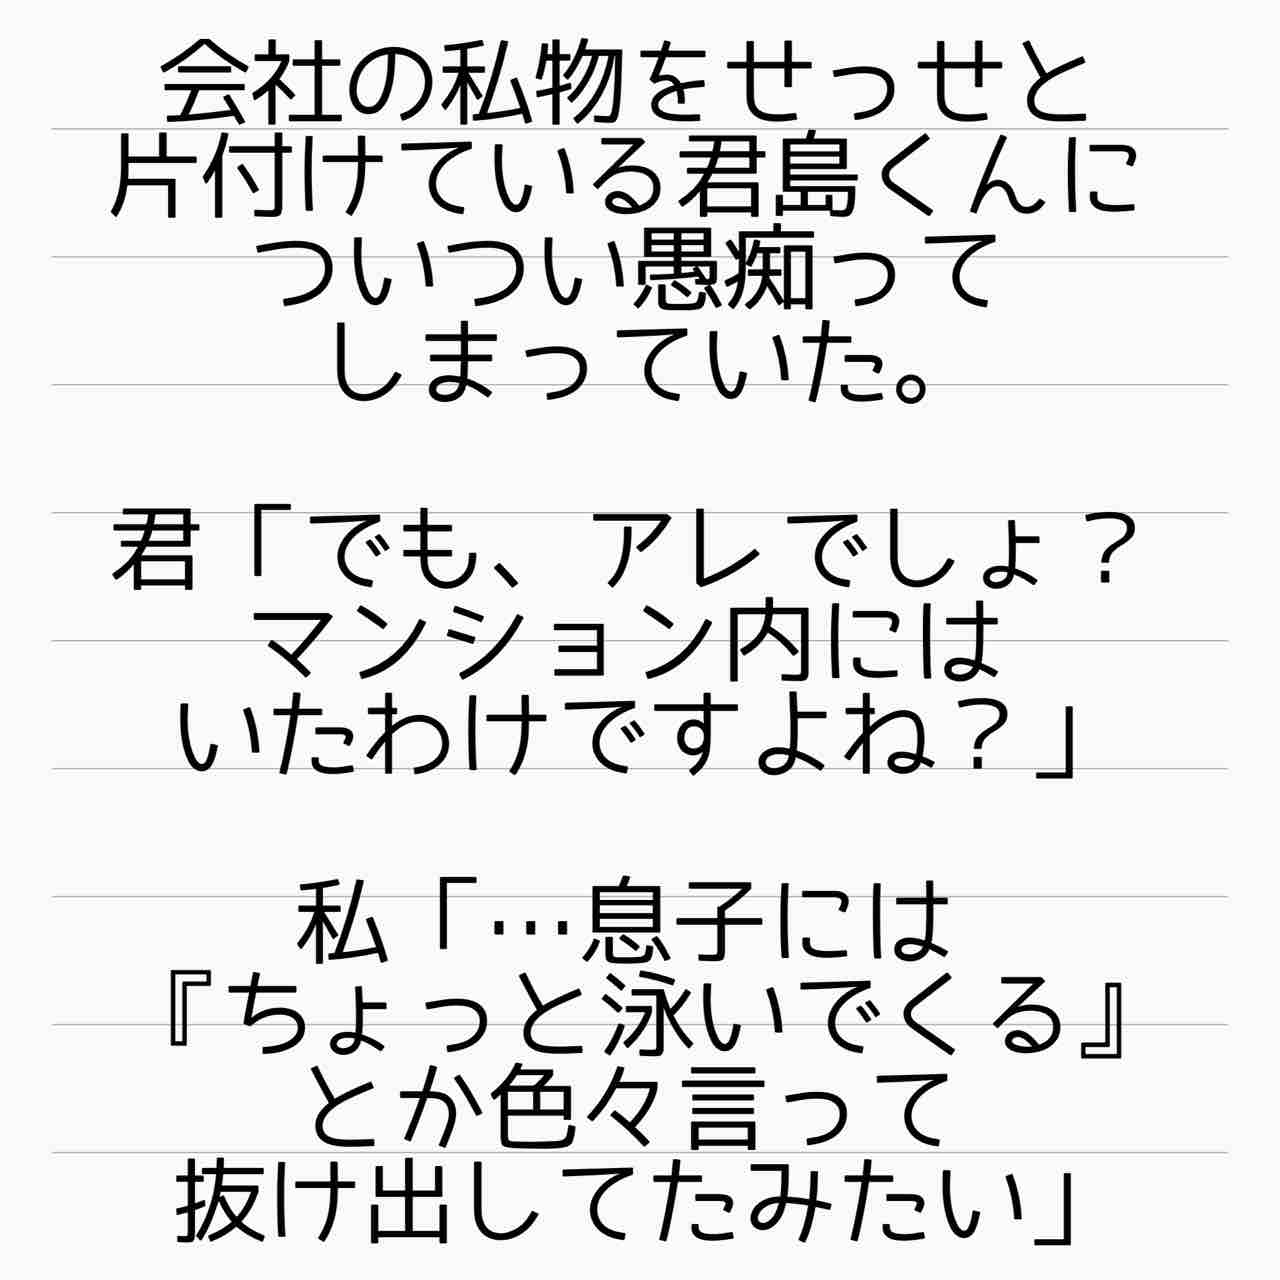 会社の私物をせっせと
片付けている君島くんに
ついつい愚痴って
しまっていた。
君「でも、アレでしょ？
マンション内には
いたわけですよね？」
私「…息子には
『ちょっと泳いでくる』
とか色々言って
抜け出してたみたい」